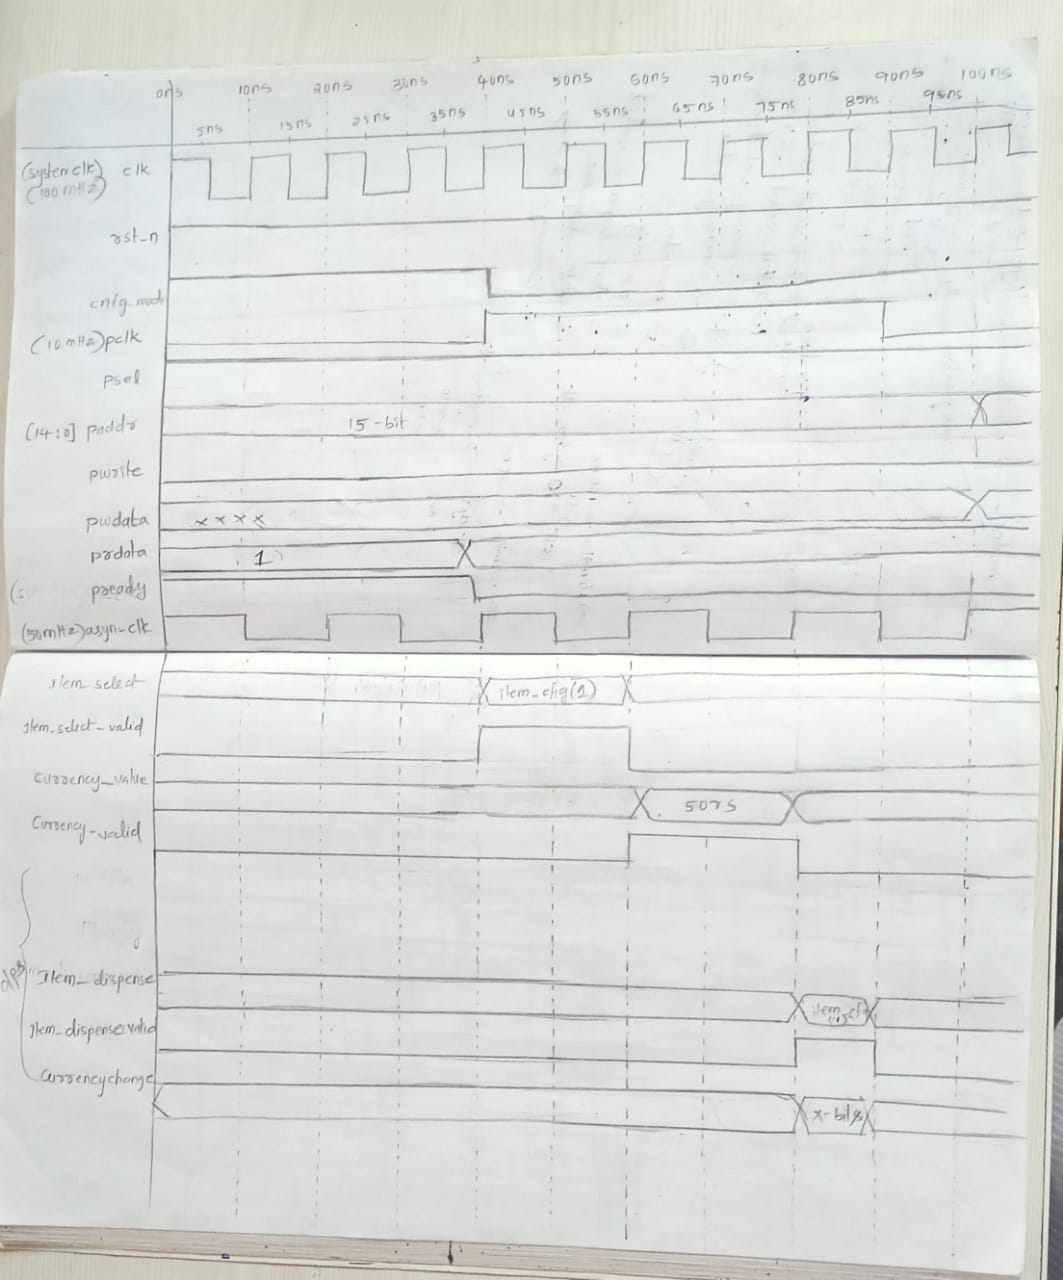 0ns 10ns 20ns 30ns 40ns 50ns 60ns 70ns 80ns 90ns 100ns
5ns 15ns 25ns 35ns 45ns 55ns 65ns 75ns 85ns 95ns
(system clk) clk
(100 MHz)
rst_n
cnfg_mode
(10 MHz) pclk
psel
[14:0] paddr 15-bit
pwrite
pwdata x x x x
prdata 1
pready
(50MHz) asyn-clk
Item select item_cfig(1)
Item.select-valid
Currency_value 50rs
Currency-valid
Item_dispense
Item_dispense valid
Currency change x-bits